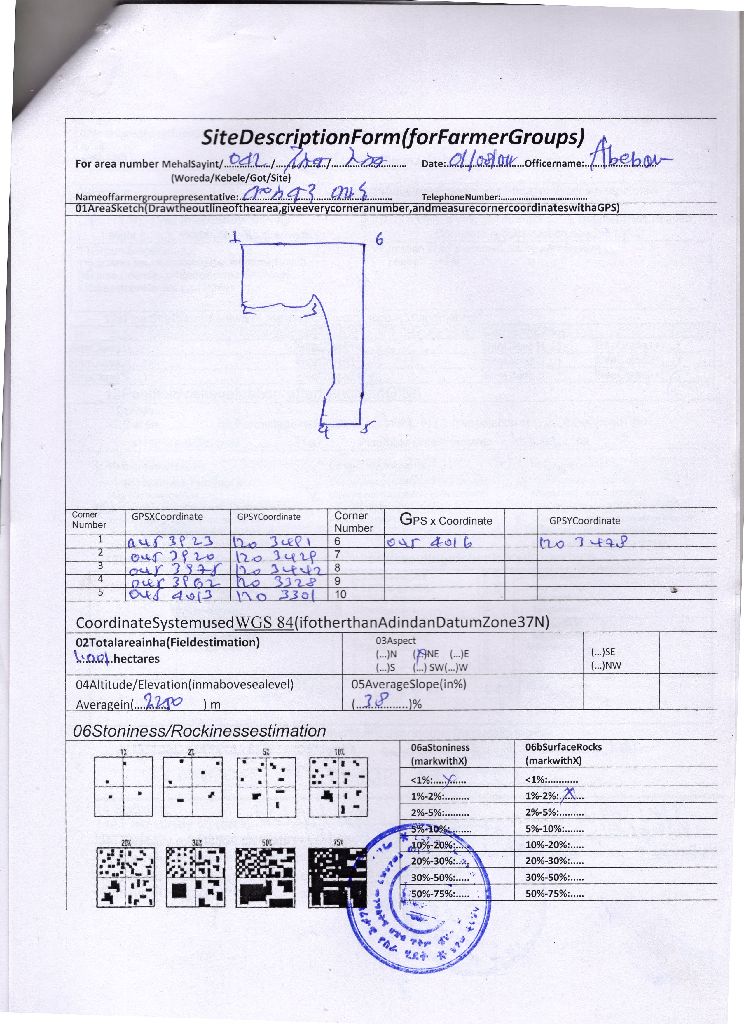 SiteDescriptionForm(forFarmerGroups)
For area number MehalSayint/ 012 / Date: 01/08/04 Officername: Abebaw
(Woreda/Kebele/Got/Site)
Nameoffarmergrouprepresentative: TelephoneNumber:
01AreaSketch(Drawtheoutlineofthearea,giveeverycorneranumber,andmeasurecornercoordinateswithaGPS)
1 6
2 3
4 5
Corner Number GPSXCoordinate GPSYCoordinate Corner Number GPS x Coordinate GPSYCoordinate
1 045 3923 120 3491 6 045 4016 120 3478
2 045 3920 120 3429 7
3 045 3975 120 3442 8
4 045 3962 120 3328 9
5 045 4013 120 3301 10
CoordinateSystemused WGS 84(ifotherthanAdindanDatumZone37N)
02Totalareainha(Fieldestimation) 03Aspect
hectares (...)N (X)NE (...)E (...)SE
(...)S (...) SW(...)W (...)NW
04Altitude/Elevation(inmabovesealevel) 05AverageSlope(in%)
Averagein(....2250 ) m (..38.........)%
06Stoniness/Rockinessestimation
1% 2% 5% 10%
20% 30% 50% 75%
06aStoniness 06bSurfaceRocks
(markwithX) (markwithX)
<1%:....X.... <1%:...........
1%-2%:......... 1%-2%:..X....
2%-5%:......... 2%-5%:.......
5%-10%:......... 5%-10%:.......
10%-20%:....... 10%-20%:......
20%-30%:..... 20%-30%:.....
30%-50%:...... 30%-50%:.....
50%-75%:..... 50%-75%:.....